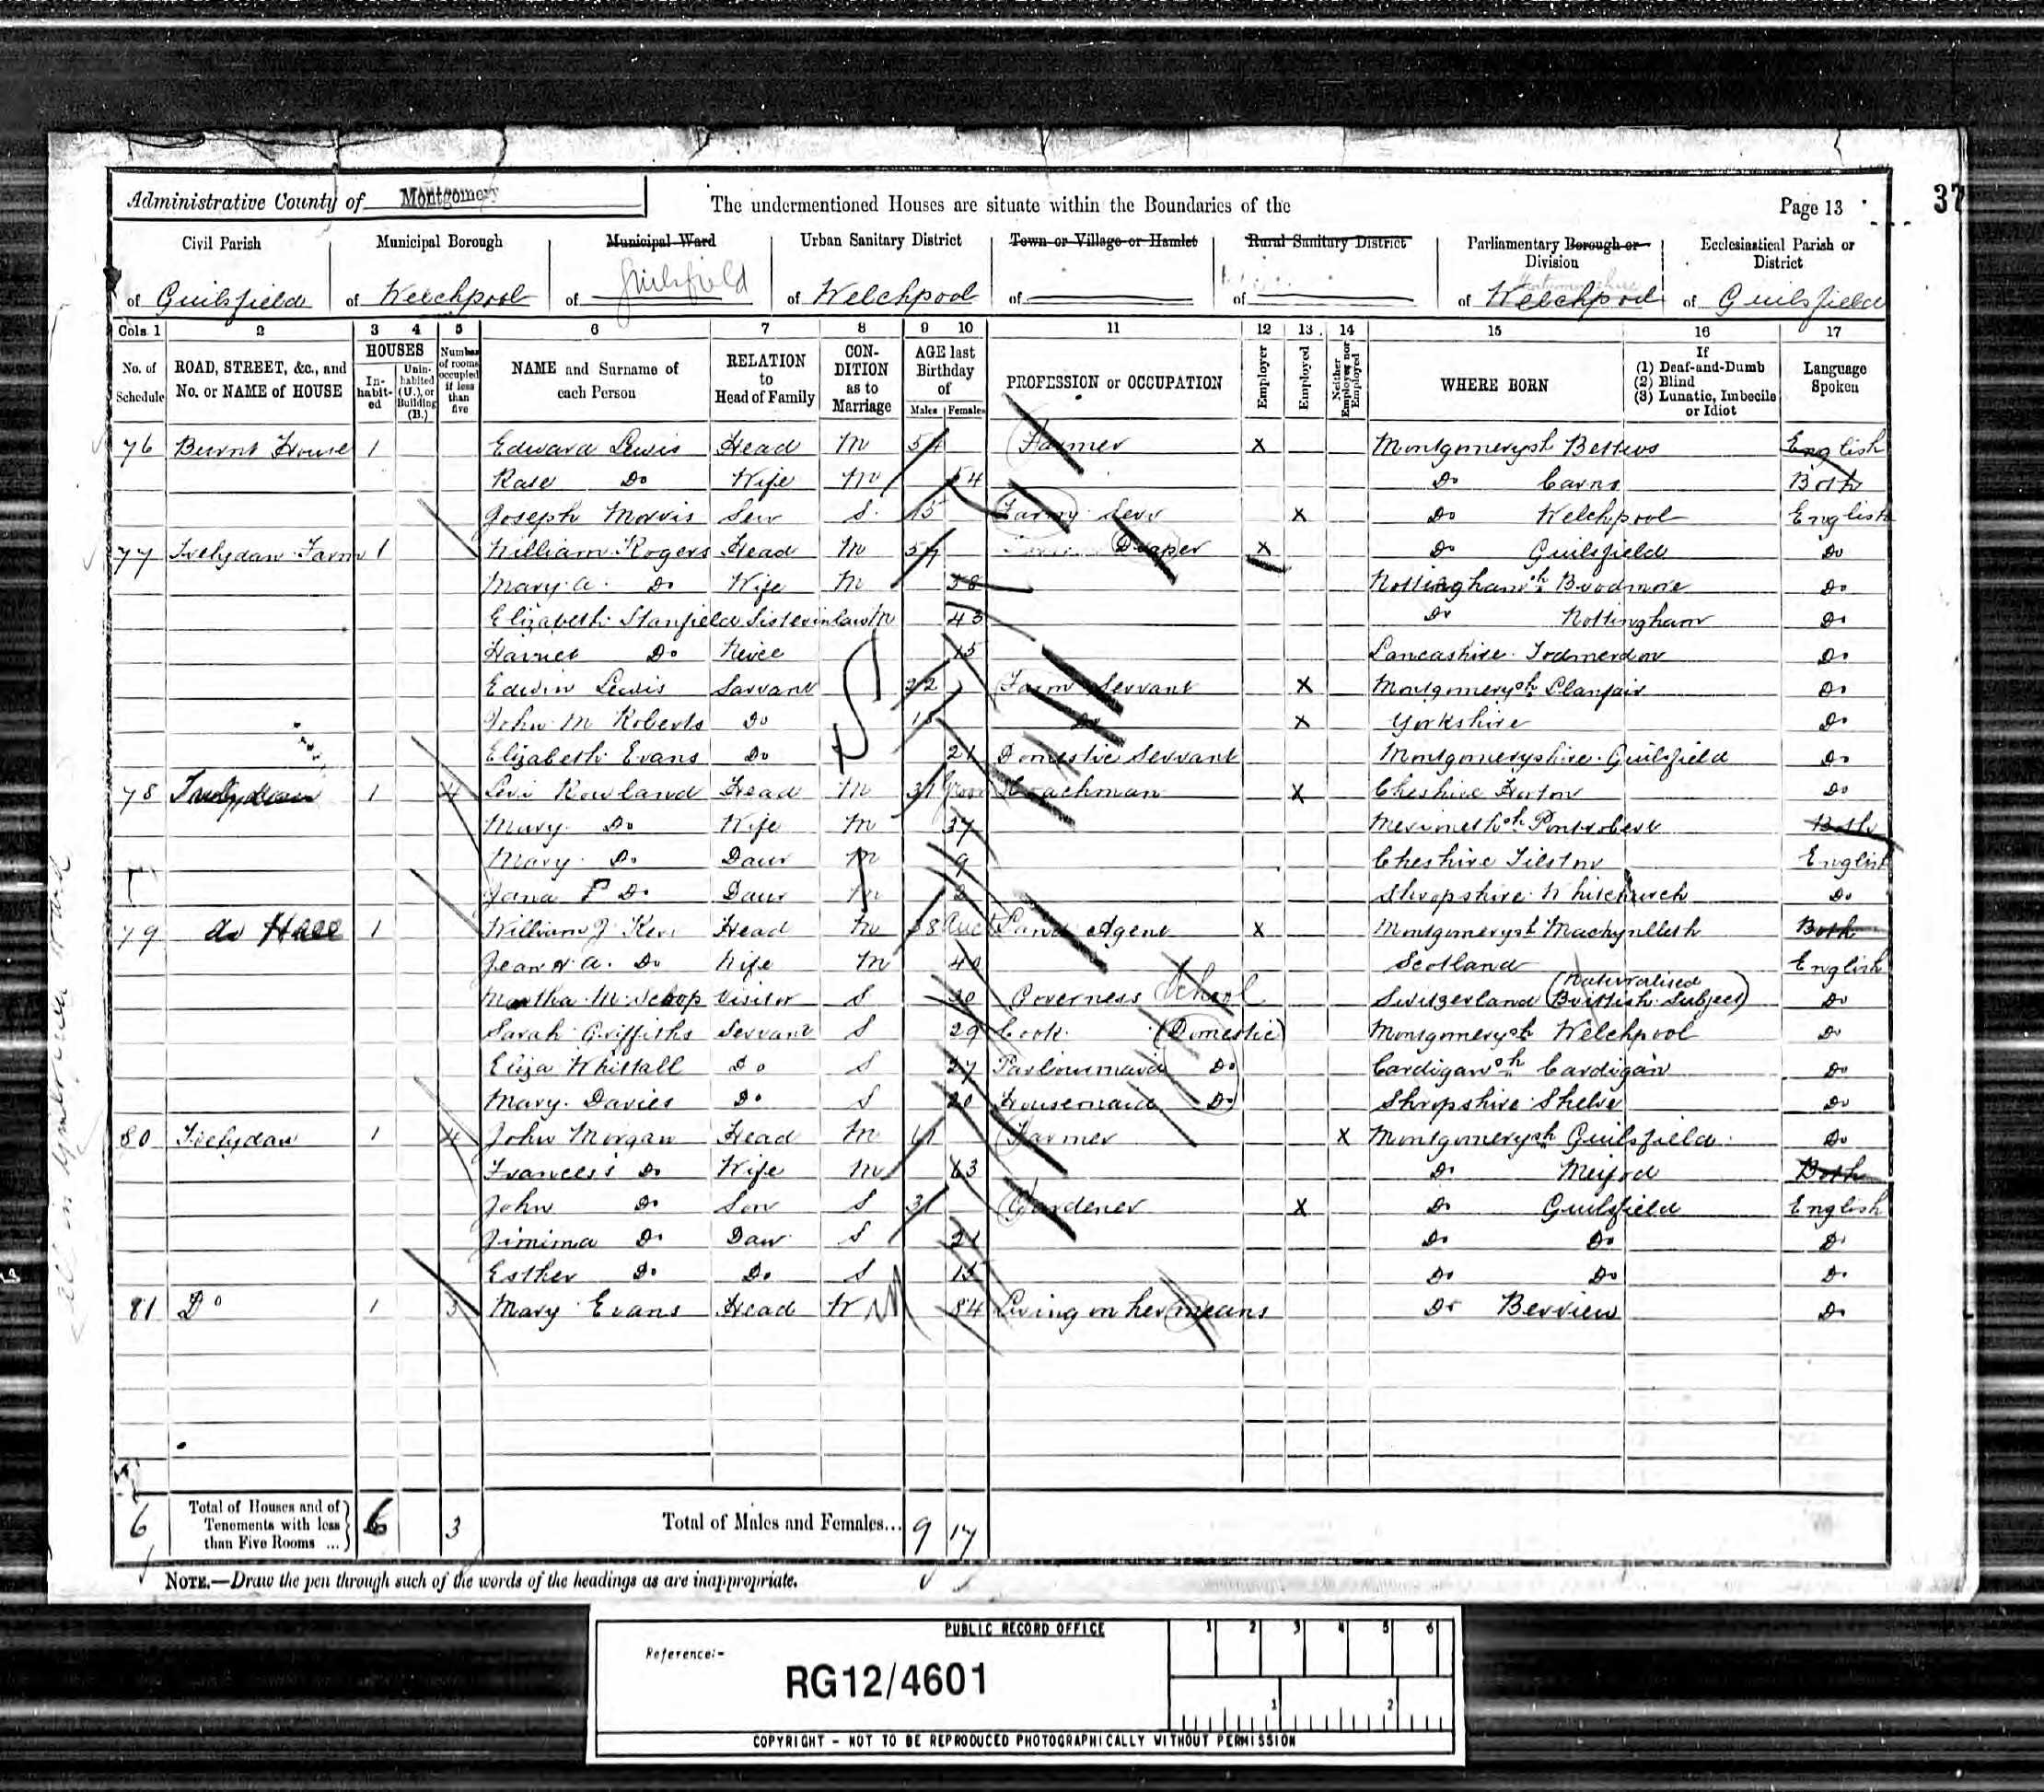 Administrative County of Montgomery The undermentioned Houses are situate within the Boundaries of the Page 13 37
Civil Parish Municipal Borough Municipal Ward Urban Sanitary District Town or Village or Hamlet Rural Sanitary District Parliamentary Borough or Division Ecclesiastical Parish or District
of Guilsfield of Welchpool of Guilsfield of Welchpool of of of Welchpool of Guilsfield
Cols. 1 2 3 4 5 6 7 8 9 10 11 12 13 14 15 16 17
No. of Schedule ROAD, STREET, &c., and No. or NAME of HOUSE HOUSES Inhabited Uninhabited (U.), or Building (B.) Number of rooms occupied if less than five NAME and Surname of each Person RELATION to Head of Family CONDITION as to Marriage AGE last Birthday of Males Females PROFESSION or OCCUPATION Employer Employed Neither Employer nor Employed WHERE BORN If (1) Deaf-and-Dumb (2) Blind (3) Lunatic, Imbecile or Idiot Language Spoken
76 Burnt House 1 Edward Lewis Head M 54 Farmer X Montgomerysh Bettws English
Do Wife M 54 Do Both
Joseph Morris Serv S 15 Farm Serv X Do Welchpool English
77 Trelydan Farm 1 William Rogers Head M Draper X Do Guilsfield Do
Mary A. Do Wife M 58 Nottinghamsh Do
Elizabeth Stanfield Sister in law M 43 Do Nottingham Do
Do Niece 15 Lancashire Todmerdon Do
Edwin Lewis Sarvant S 22 Farm Servant X Montgomerysh Llanfair Do
John M Roberts Do Do X Yorkshire Do
Elizabeth Evans Do 21 Domestic Servant Montgomeryshire Guilsfield Do
78 Trelydan 1 4 Levi Rowland Head M 31 Coachman X Cheshire Do
Mary Do Wife M 37 Merionethsh Pontrobert Both
Mary Do Daur M 9 Cheshire Tilston English
Jana F Do Daur M 2 Shropshire Whitchurch Do
79 do Hall 1 William J Head M 38 Land Agent X Montgomerysh Machynlleth Both
Jean A. Do Wife M 40 Scotland English
Martha M Visitor S 30 Governess School Switzerland (Naturalised British Subject) Do
Sarah Griffiths Servant S 29 Cook (Domestic) Montgomerysh Welchpool Do
Eliza Whittall Do S 27 Parlourmaid Do Cardigansh Cardigan Do
Mary Davies Do S 20 Housemaid Do Shropshire Do
80 Trelydan 1 4 John Morgan Head M 61 Farmer X Montgomerysh Guilsfield Do
Francess Do Wife M 63 Do Meifod Both
John Do Son S 31 Gardener X Do Guilsfield English
Jimima Do Daur S 21 Do Do Do
Esther Do Do S 15 Do Do Do
81 Do 1 3 Mary Evans Head W 84 Living on her means Do Berriew Do
6 Total of Houses and of Tenements with less than Five Rooms ... 6 3 Total of Males and Females... 9 17
NOTE.—Draw the pen through such of the words of the headings as are inappropriate.
PUBLIC RECORD OFFICE 1 2 3 4 5 6
Reference:-
RG12/4601
1 2
COPYRIGHT - NOT TO BE REPRODUCED PHOTOGRAPHICALLY WITHOUT PERMISSION